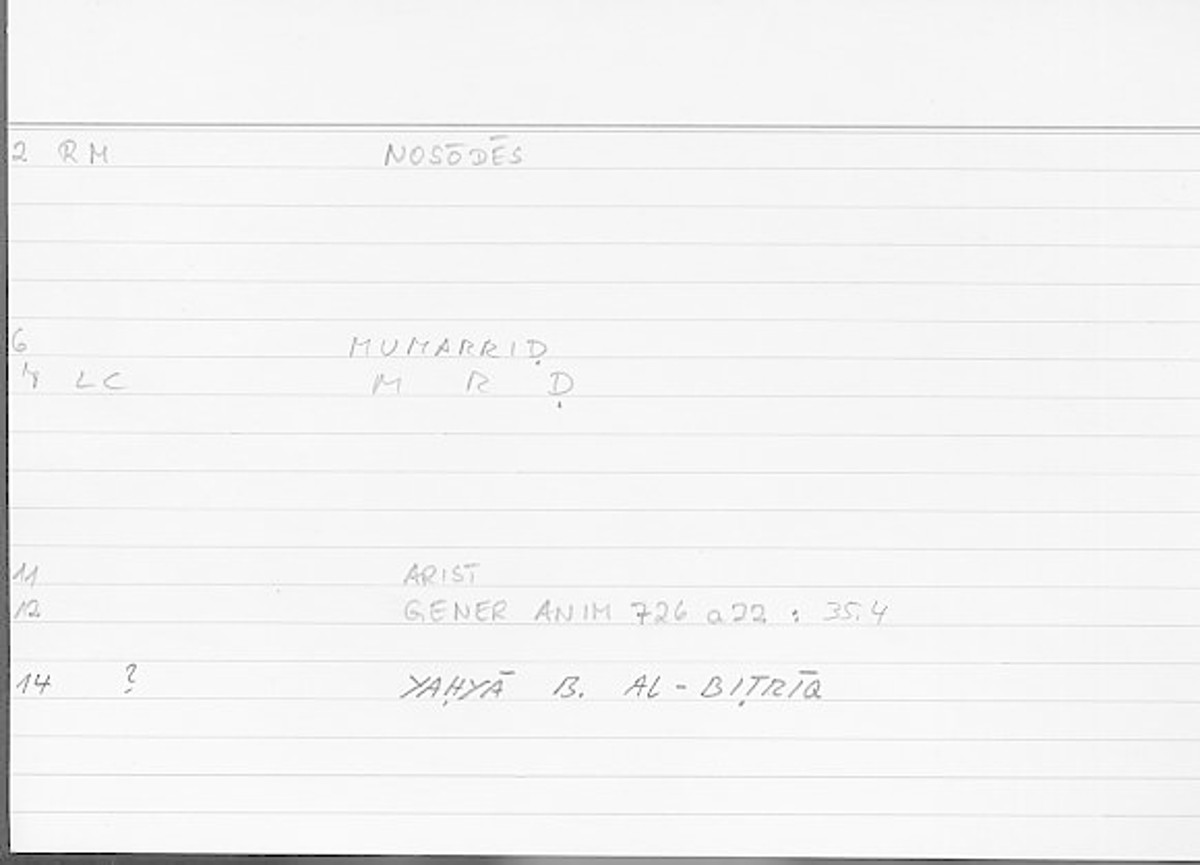 2 RM NOSŌDĒS
6 MUMARRIḌ
LC M R Ḍ
11 ARIST
12 GENER ANIM 726 a22 : 35.4
14 ? YAḤYĀ B. AL-BIṬRĪQ